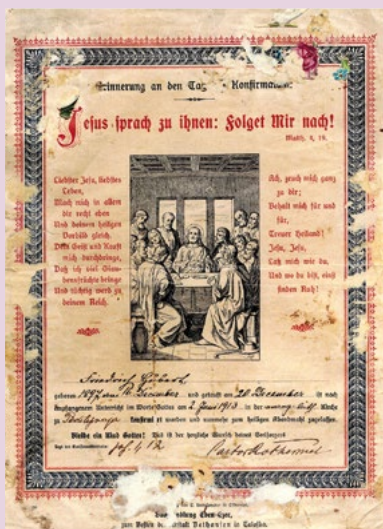 Erinnerung an den Tag Konfirmation
Jesus sprach zu ihnen: Folget Mir nach!
Matth. 4, 19.
Liebster Jesu, liebstes
Leben,
Mach mich in allem
dir recht eben
Und deinem heiligen
Vorbild gleich.
Dein Geist und Kraft
mich durchdringe,
Daß ich viel Glau-
bensfrüchte bringe
Und tüchtig werd zu
deinem Reich.
Ach, zeuch mich ganz
zu dir;
Behalt mich für und
für,
Treuer Heiland!
Jesu, Jesu,
Laß mich wie du,
Und wo du bist, einst
finden Ruh!
Friedrich
geboren 1897 am December und getauft am 20 December ist nach
empfangenem Unterricht im Worte Gottes am 2 Juni 1913 in der evang. luth. Kirche
zu konfirmiert worden und nunmehr zum heiligen Abendmahl zugelassen.
Bleibe ein Kind Gottes! Das ist der herzliche Wunsch deines Seelsorgers
Pastor Rothermel
Eben-Ezer,
zum Besten der Anstalt Bethanien in Talowka.